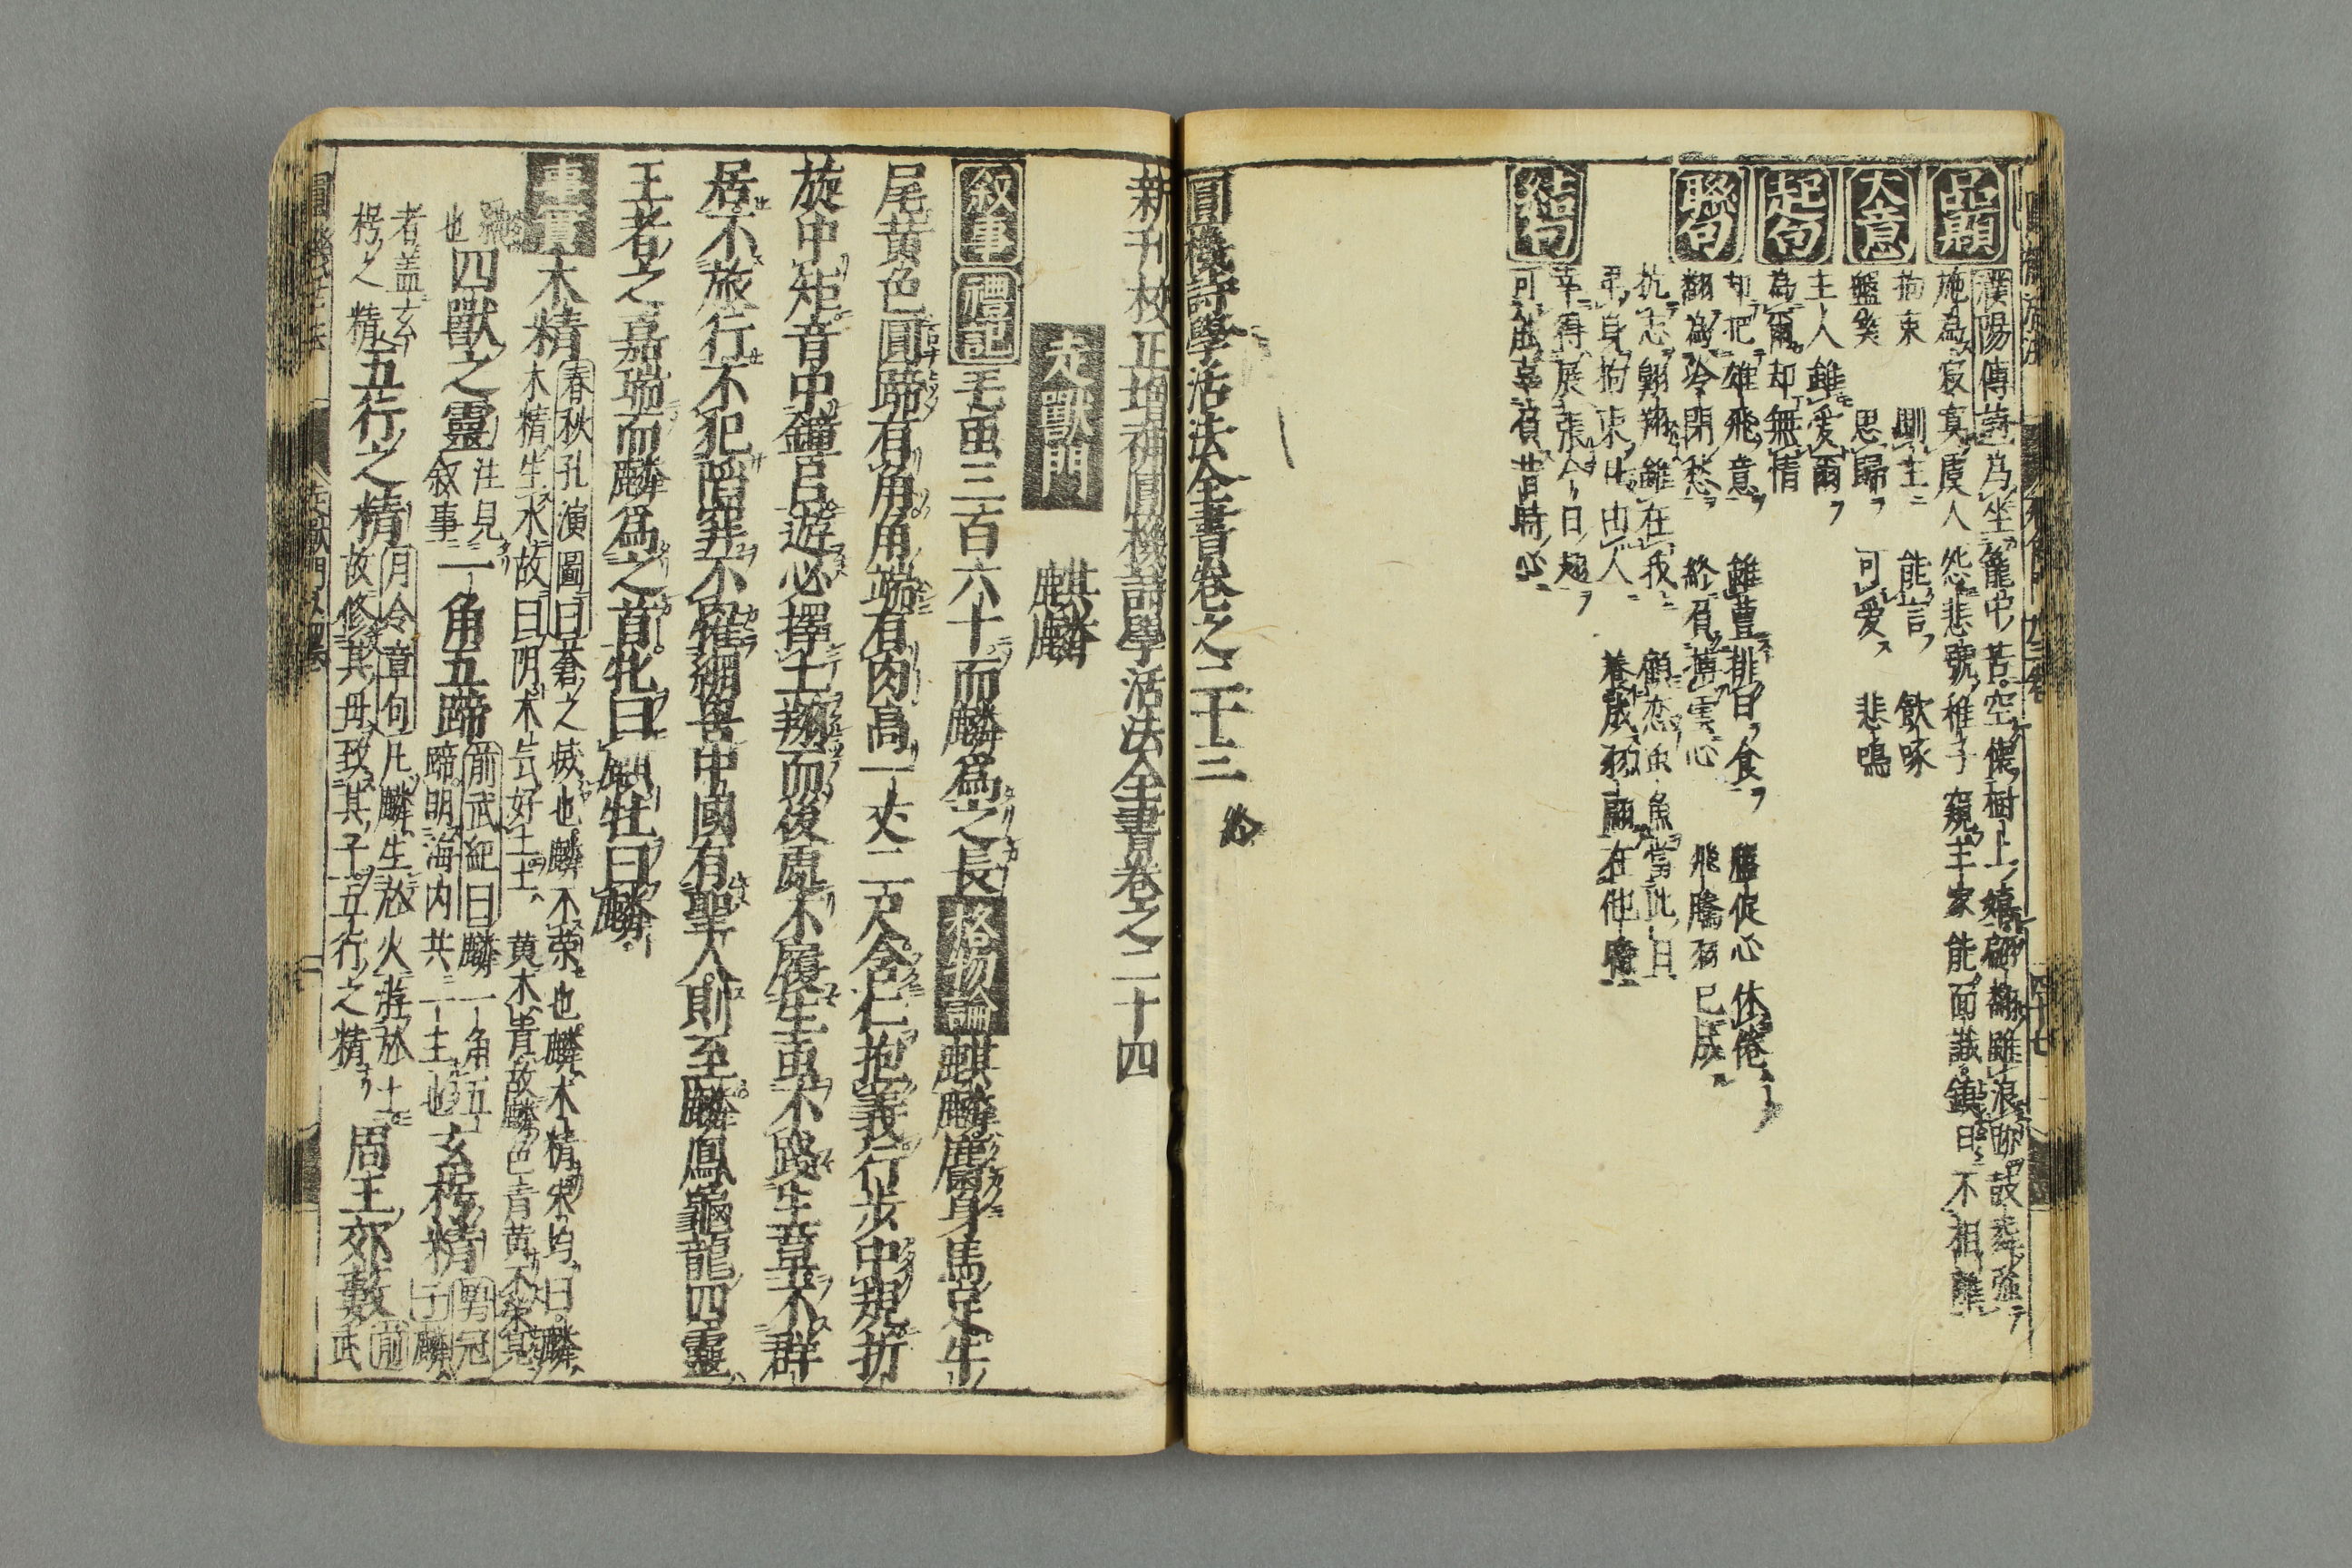 品題
濮陽傳詩
爲坐籠中苦空懷樹上嬉翩翻雖浪跡鼓舞強
施爲寂寞虞人怨悲號稚子窺主家能面識鎮日不相離
大意
拘束 馴主 能言 飲啄
盤矣 思歸 可愛 悲鳴
起句
主人雖愛爾
為爾却無情
聯句
却把雄飛意 雖豊排日食 應促心休倦
翻為冷閉愁 終有摶雲心 飛騰羽已成
抗志翺翔雖在我 顧恋虫魚當此日
弔身拘束出由人 養成羽翮在他時
結句
幸得展張今日翅
可孤辜負昔時心
圓機詩學活法全書卷之二十三終
新刊校正增補圓機詩學活法全書卷之二十四
走獸門
麒麟
叙事 禮記 毛虫三百六十而麟爲之長 格物論 麒麟麕身馬足牛
尾黄色圓蹄有角角端有肉高一丈二尺含仁抱義行歩中規折
旋中矩音中鐘呂遊必擇土翔而後處不履生虫不踏生草不群
居不旅行不犯陷穽不罹網罟中國有聖人則至麟鳳龜龍四靈
王者之嘉瑞而麟爲之首牝曰麒牡曰麟
事實 木精 春秋孔演圖曰蒼之滅也麟不榮也麟木精宋均曰麟
木精生水故曰阴木氣好土土黄木青故麟色青黄不榮見
也四獸之靈 注見叙事 一角五蹄 前武紀曰麟一角五
蹄明海内共一主也 玄枵精 鶡冠子麟
者盖玄枵之精 五行之精 月令章句凡麟生於火遊於土
故修其母致其子五行之精 周王郊藪 前武